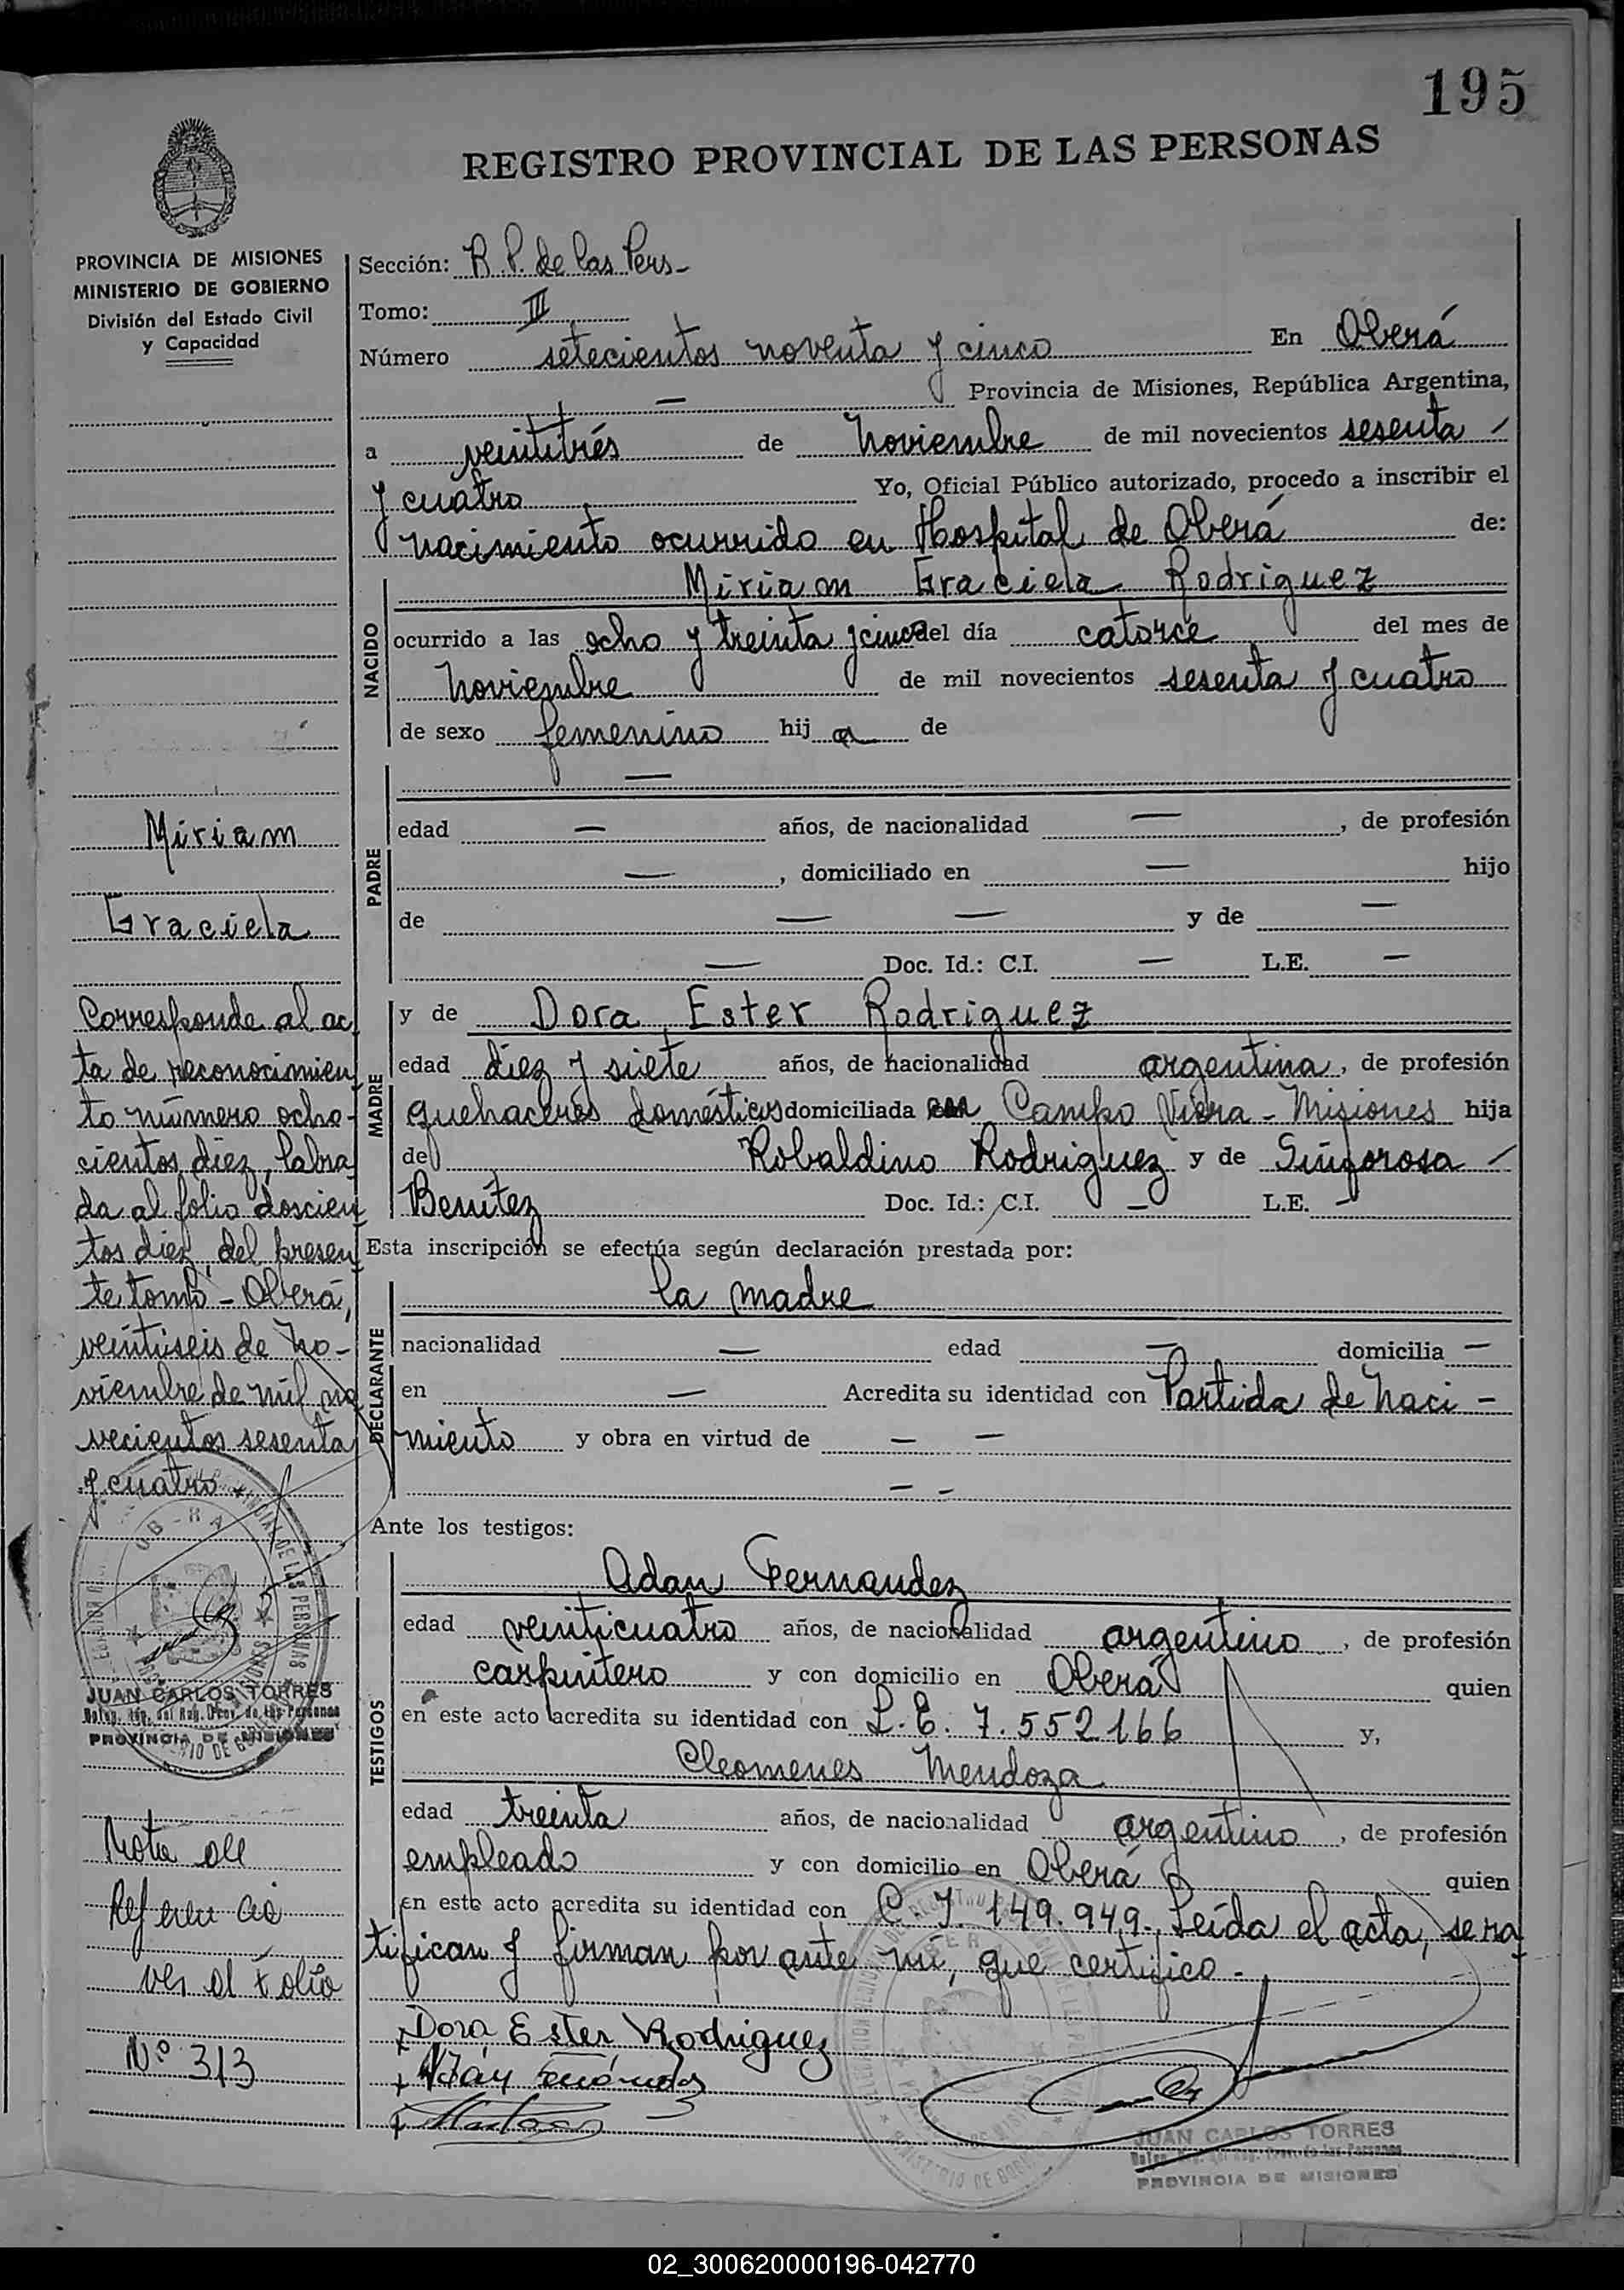 195
REGISTRO PROVINCIAL DE LAS PERSONAS
PROVINCIA DE MISIONES
MINISTERIO DE GOBIERNO
División del Estado Civil
y Capacidad
Sección: R.P. de las Pers-
Tomo: III
Número setecientos noventa y cinco En Oberá
— Provincia de Misiones, República Argentina,
a veintitrés de Noviembre de mil novecientos sesenta
y cuatro Yo, Oficial Público autorizado, procedo a inscribir el
nacimiento ocurrido en Hospital de Oberá de:
NACIDO
Miriam Graciela Rodriguez
ocurrido a las ocho y treinta y cinco del día catorce del mes de
Noviembre de mil novecientos sesenta y cuatro
de sexo femenino hij a de
PADRE
—
edad — años, de nacionalidad — , de profesión
— , domiciliado en — hijo
de — — y de —
— Doc. Id.: C.I. — L.E. —
MADRE
y de Dora Ester Rodriguez
edad diez y siete años, de nacionalidad argentina, de profesión
quehaceres domésticos domiciliada en Campo Viera - Misiones hija
de Robaldino Rodriguez y de Sinforosa
Benitez Doc. Id.: C.I. — L.E. —
Esta inscripción se efectúa según declaración prestada por:
DECLARANTE
la madre
nacionalidad — edad — domicilia —
en — Acredita su identidad con Partida de Naci-
miento y obra en virtud de — —
— -
Ante los testigos:
TESTIGOS
Adan Fernandez
edad veinticuatro años, de nacionalidad argentino, de profesión
carpintero y con domicilio en Oberá quien
en este acto acredita su identidad con L.E. 7.552166 y,
Cleomenes Mendoza
edad treinta años, de nacionalidad argentino, de profesión
empleado y con domicilio en Oberá quien
en este acto acredita su identidad con C. I. 149.949. Leída el acta, se ra
tifican y firman por ante mí, que certifico.-
Dora Ester Rodriguez
JUAN CARLOS TORRES
PROVINCIA DE MISIONES
Miriam
Graciela
Corresponde al ac
ta de reconocimien
to número ocho-
cientos diez, labra
da al folio doscien
tos diez, del presen
te tomo - Oberá,
veintiseis de No-
viembre de mil no
vecientos sesenta
y cuatro
JUAN CARLOS TORRES
PROVINCIA DE MISIONES
Nota de
Referencia
ver al Folio
Nº 313
02_300620000196-042770